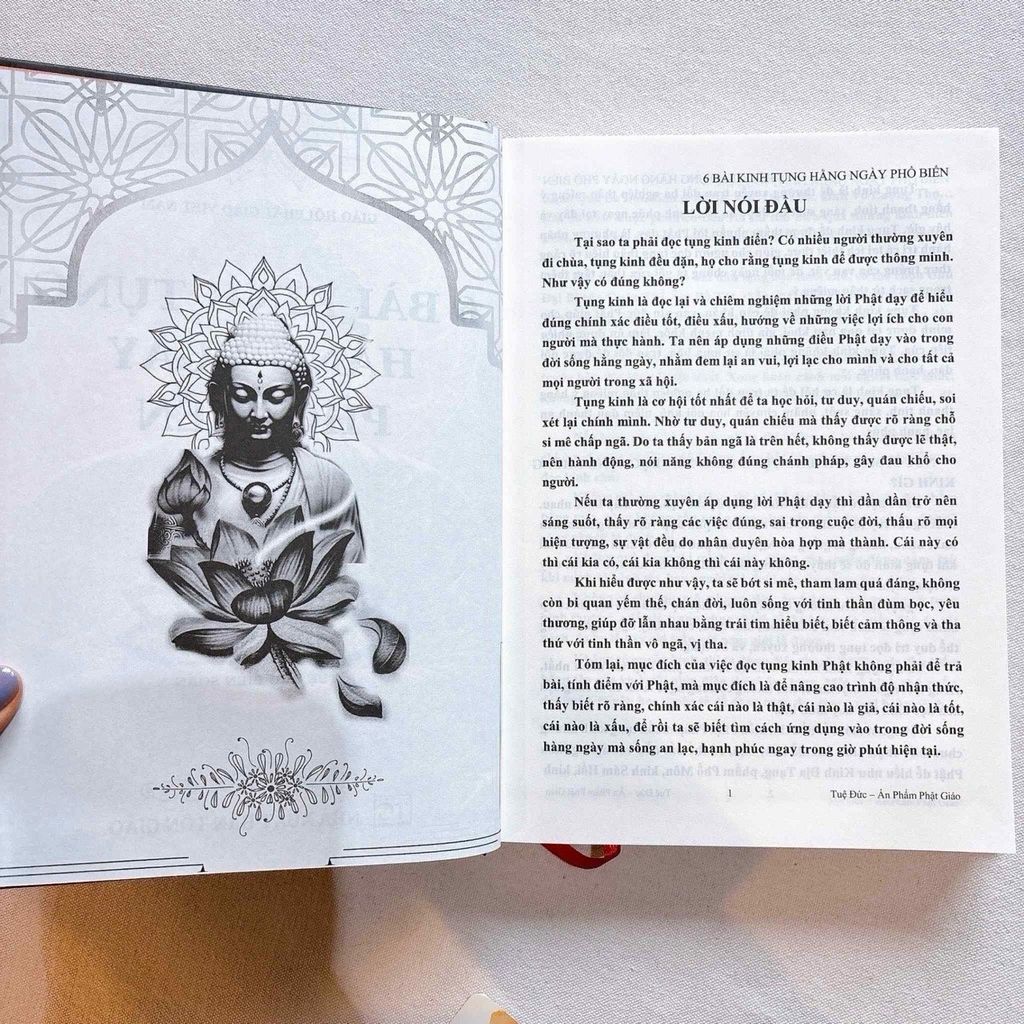 6 BÀI KINH TỤNG HÀNG NGÀY PHỔ BIẾN
LỜI NÓI ĐẦU
Tại sao ta phải đọc tụng kinh điển? Có nhiều người thường xuyên
đi chùa, tụng kinh đều đặn, họ cho rằng tụng kinh để được thông minh.
Như vậy có đúng không?
Tụng kinh là đọc lại và chiêm nghiệm những lời Phật dạy để hiểu
đúng chính xác điều tốt, điều xấu, hướng về những việc lợi ích cho con
người mà thực hành. Ta nên áp dụng những điều Phật dạy vào trong
đời sống hằng ngày, nhằm đem lại an vui, lợi lạc cho mình và cho tất cả
mọi người trong xã hội.
Tụng kinh là cơ hội tốt nhất để ta học hỏi, tư duy, quán chiếu, soi
xét lại chính mình. Nhờ tư duy, quán chiếu mà thấy được rõ ràng chỗ
si mê chấp ngã. Do ta thấy bản ngã là trên hết, không thấy được lẽ thật,
nên hành động, nói năng không đúng chánh pháp, gây đau khổ cho
người.
Nếu ta thường xuyên áp dụng lời Phật dạy thì dần dần trở nên
sáng suốt, thấy rõ ràng các việc đúng, sai trong cuộc đời, thấu rõ mọi
hiện tượng, sự vật đều do nhân duyên hòa hợp mà thành. Cái này có
thì cái kia có, cái kia không thì cái này không.
Khi hiểu được như vậy, ta sẽ bớt si mê, tham lam quá đáng, không
còn bi quan yếm thế, chán đời, luôn sống với tinh thần đùm bọc, yêu
thương, giúp đỡ lẫn nhau bằng trái tim hiểu biết, biết cảm thông và tha
thứ với tinh thần vô ngã, vị tha.
Tóm lại, mục đích của việc đọc tụng kinh Phật không phải để trả
bài, tính điểm với Phật, mà mục đích là để nâng cao trình độ nhận thức,
thấy biết rõ ràng, chính xác cái nào là thật, cái nào là giả, cái nào là tốt,
cái nào là xấu, để rồi ta sẽ biết tìm cách ứng dụng vào trong đời sống
hàng ngày mà sống an lạc, hạnh phúc ngay trong giờ phút hiện tại.
1 Tuệ Đức – Ấn Phẩm Phật Giáo